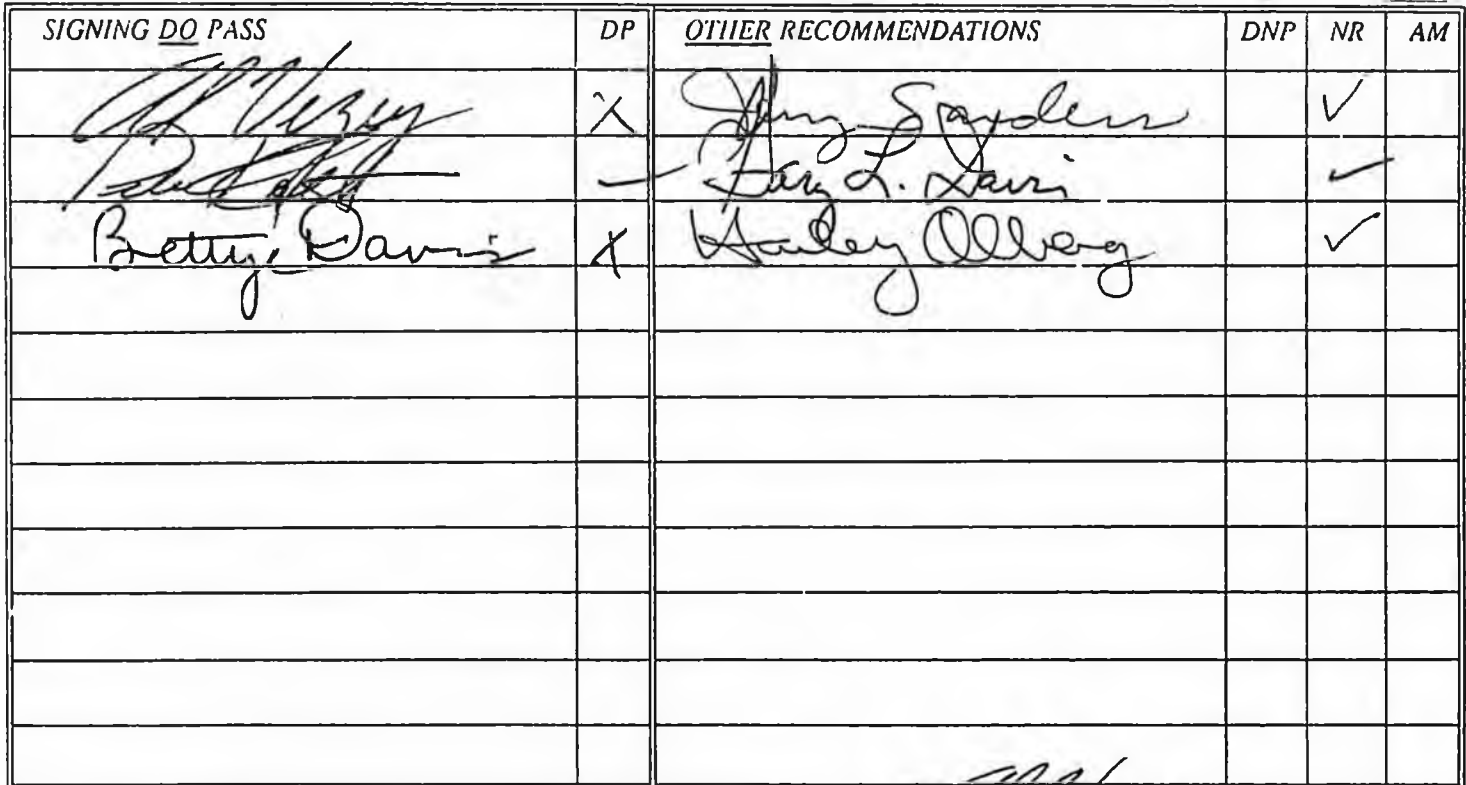 SIGNING DO PASS DP OTHER RECOMMENDATIONS DNP NR AM
Al Vezey X Jerry Sanders ✓
Pete Kott ✓ Gary L. Davis ✓
Bettye Davis X Harley Olberg ✓